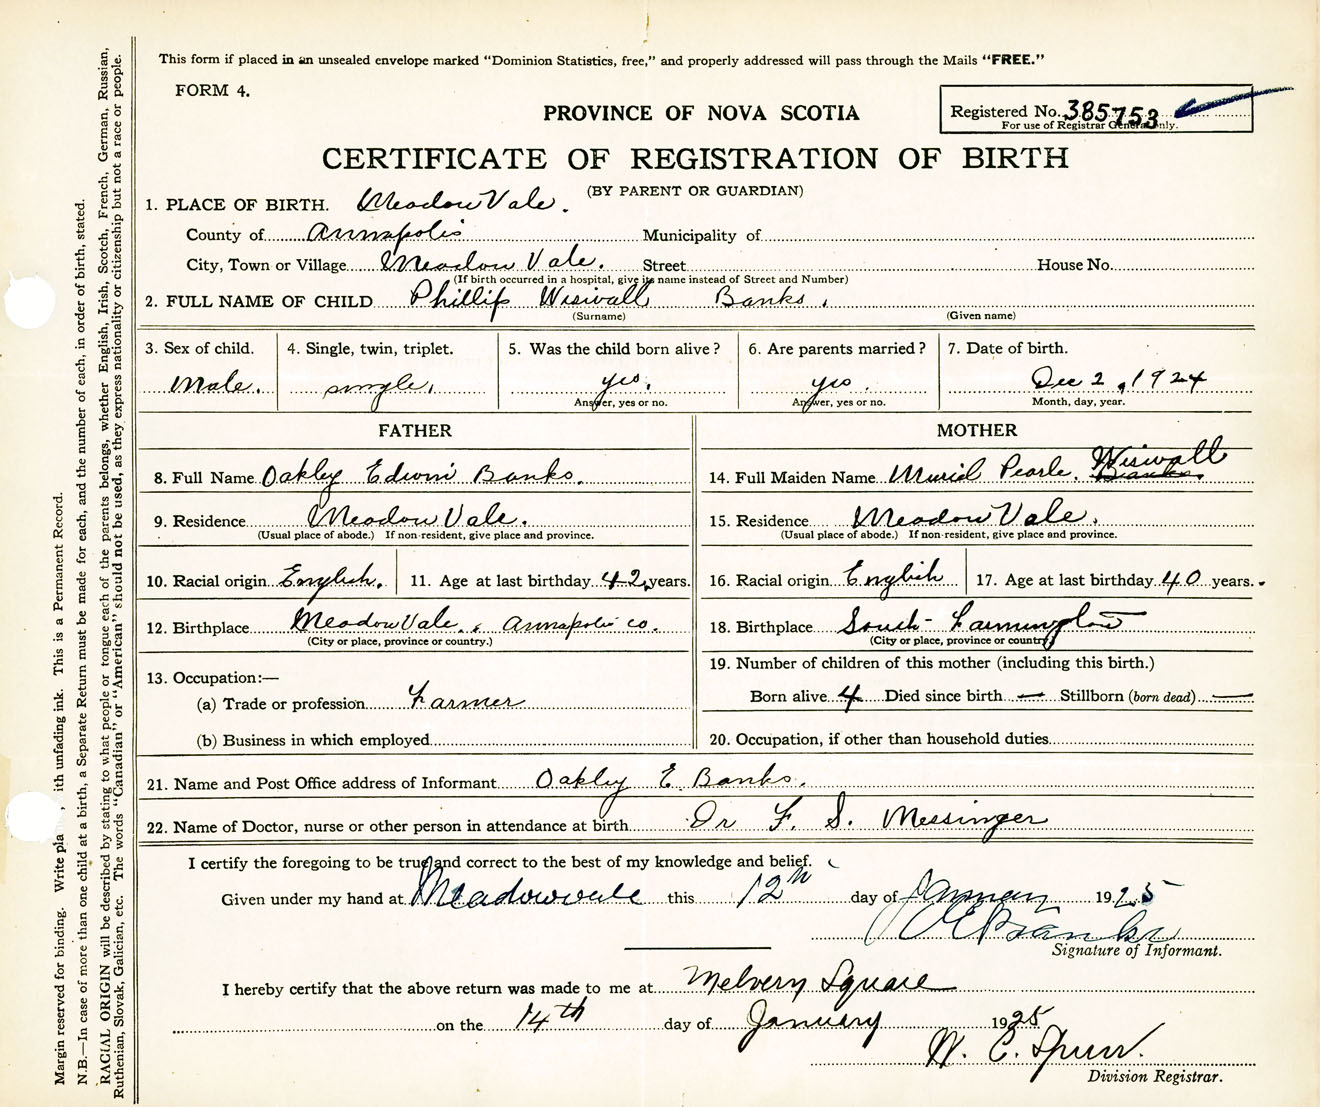 This form if placed in an unsealed envelope marked “Dominion Statistics, free,” and properly addressed will pass through the Mails “FREE.”
FORM 4.
PROVINCE OF NOVA SCOTIA
Registered No. 385753
For use of Registrar General only.
CERTIFICATE OF REGISTRATION OF BIRTH
(BY PARENT OR GUARDIAN)
1. PLACE OF BIRTH. Meadow Vale.
County of Annapolis Municipality of
City, Town or Village Meadow Vale. Street House No.
(If birth occurred in a hospital, give its name instead of Street and Number)
2. FULL NAME OF CHILD Phillip Wiswall Banks.
(Surname) (Given name)
3. Sex of child. 4. Single, twin, triplet. 5. Was the child born alive? 6. Are parents married? 7. Date of birth.
Male. single. yes. yes. Dec 2, 1924
Answer, yes or no. Answer, yes or no. Month, day, year.
FATHER MOTHER
8. Full Name Oakley Edwin Banks. 14. Full Maiden Name Muriel Pearle. Banks. Wiswall
9. Residence Meadow Vale. 15. Residence Meadow Vale.
(Usual place of abode.) If non-resident, give place and province. (Usual place of abode.) If non-resident, give place and province.
10. Racial origin English. 11. Age at last birthday 42 years. 16. Racial origin English 17. Age at last birthday 40 years.
12. Birthplace Meadow Vale, Annapolis co. 18. Birthplace South Farmington
(City or place, province or country.) (City or place, province or country)
13. Occupation:— 19. Number of children of this mother (including this birth.)
(a) Trade or profession Farmer Born alive 4 Died since birth — Stillborn (born dead) —
(b) Business in which employed 20. Occupation, if other than household duties
21. Name and Post Office address of Informant Oakley E. Banks.
22. Name of Doctor, nurse or other person in attendance at birth Dr F. S. Messinger
I certify the foregoing to be true and correct to the best of my knowledge and belief.
Given under my hand at Meadowvale this 12th day of January 1925
O E Banks
Signature of Informant.
I hereby certify that the above return was made to me at Melvern Square
on the 14th day of January 1925
W. C. Spurr.
Division Registrar.
Margin reserved for binding. Write pla ith unfading ink. This is a Permanent Record.
N.B.—In case of more than one child at a birth, a Separate Return must be made for each, and the number of each, in order of birth, stated.
RACIAL ORIGIN will be described by stating to what people or tongue each of the parents belongs, whether English, Irish, Scotch, French, German, Russian,
Ruthenian, Slovak, Galician, etc. The words “Canadian” or “American” should not be used, as they express nationality or citizenship but not a race or people.